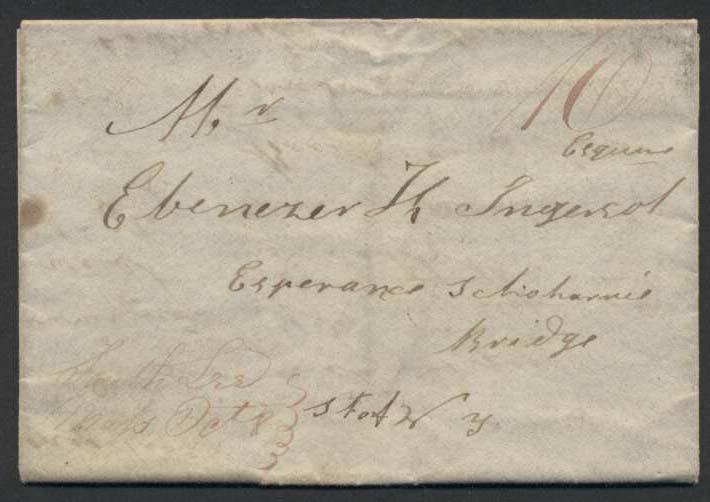 10
Mr
Esquire
Ebenezer H Ingersol
Esperance Schoharrie
Bridge
South Lee
Oct 8
St of N Y